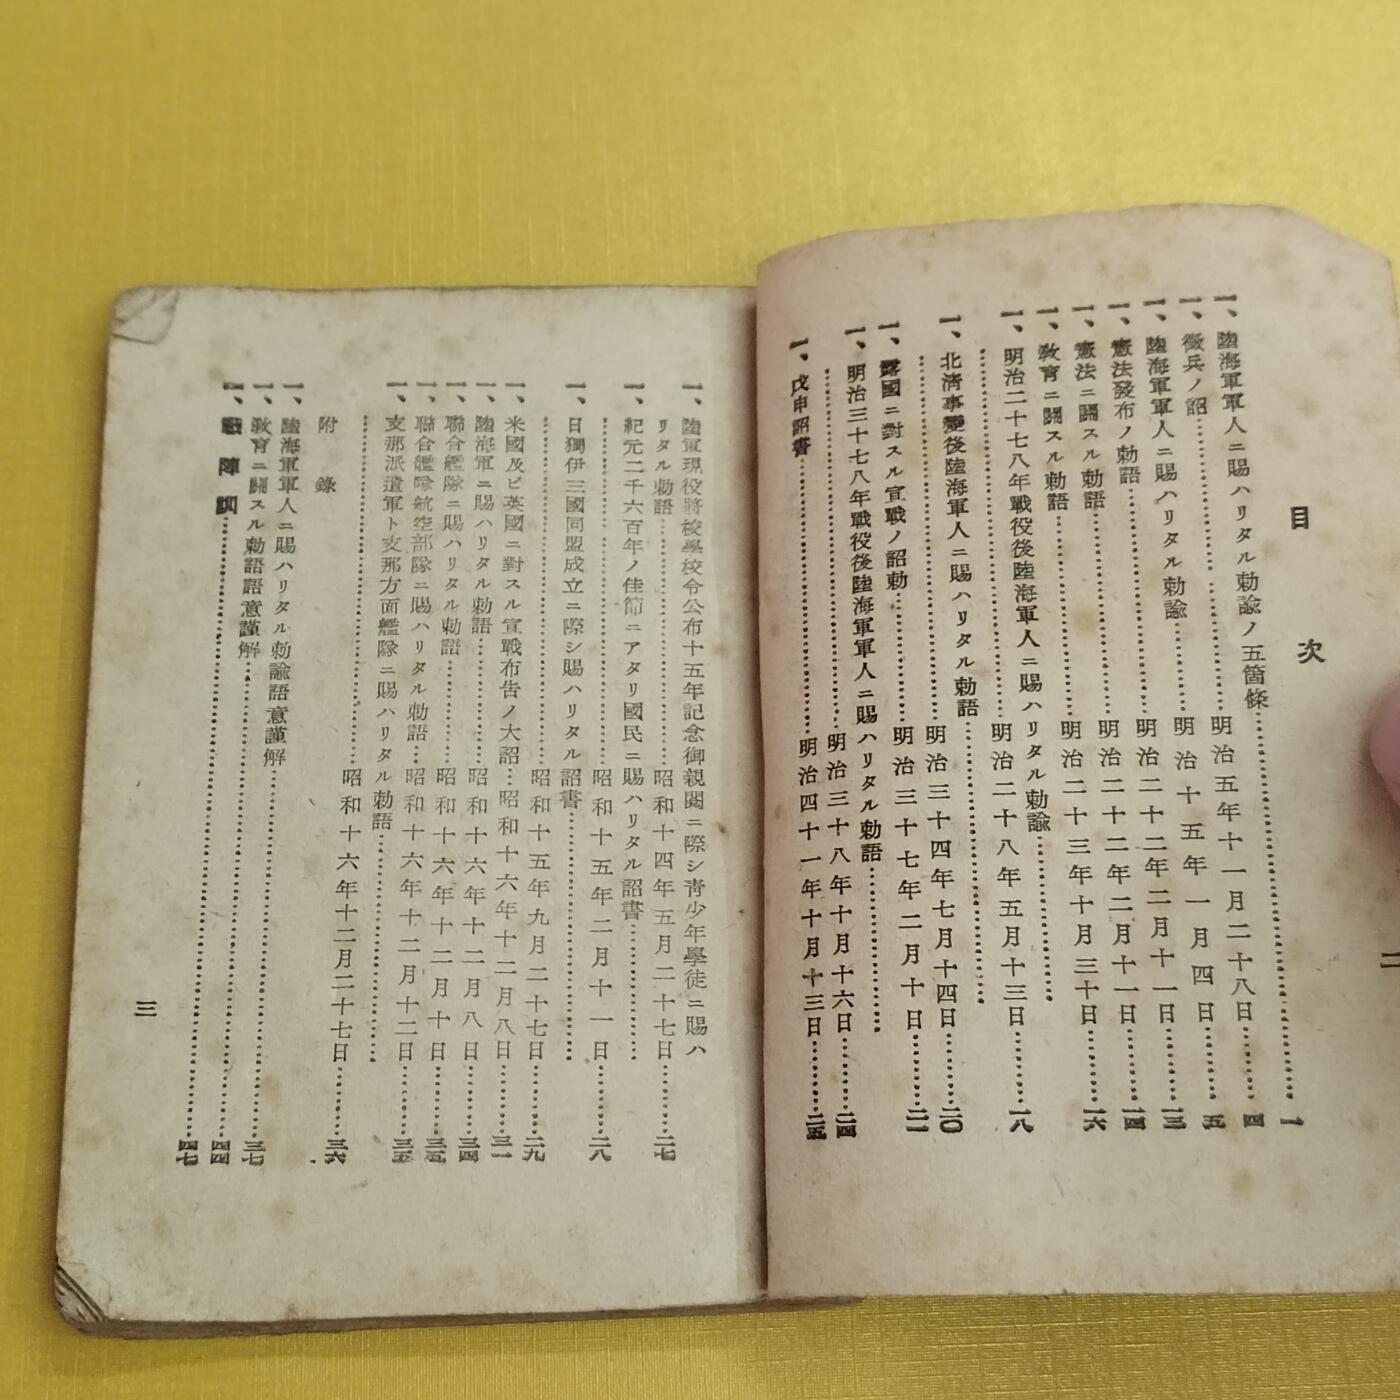 目次
一、陸海軍軍人ニ賜ハリタル勅諭ノ五箇條……一
一、徴兵ノ詔……明治五年十一月二十八日……四
一、陸海軍軍人ニ賜ハリタル勅諭……明治十五年一月四日……五
一、憲法發布ノ勅語……明治二十二年二月十一日……一三
一、憲法ニ關スル勅語……明治二十二年二月十一日……一四
一、敎育ニ關スル勅語……明治二十三年十月三十日……一六
一、明治二十七八年戰役後陸海軍人ニ賜ハリタル勅諭……
……明治二十八年五月十三日……一八
一、北淸事變後陸海軍人ニ賜ハリタル勅語……
……明治三十四年七月十四日……二〇
一、露國ニ對スル宣戰ノ詔勅……明治三十七年二月十日……二一
一、明治三十七八年戰役後陸海軍軍人ニ賜ハリタル勅語……
……明治三十八年十月十六日……二四
一、戊申詔書……明治四十一年十月十三日……二五
二
一、陸軍現役將校學校令公布十五年記念御親閱ニ際シ靑少年學徒ニ賜ハ
リタル勅語……昭和十四年五月二十七日……二七
一、紀元二千六百年ノ佳節ニアタリ國民ニ賜ハリタル詔書……
……昭和十五年二月十一日……二八
一、日獨伊三國同盟成立ニ際シ賜ハリタル詔書……
……昭和十五年九月二十七日……二九
一、米國及ビ英國ニ對スル宣戰布告ノ大詔……昭和十六年十二月八日……三一
一、陸海軍ニ賜ハリタル勅語……昭和十六年十二月八日……三四
一、聯合艦隊ニ賜ハリタル勅語……昭和十六年十二月十日……三五
一、聯合艦隊航空部隊ニ賜ハリタル勅語……昭和十六年十二月十二日……三五
一、支那派遣軍ト支那方面艦隊ニ賜ハリタル勅語……
……昭和十六年十二月二十七日……三六
附錄
一、陸海軍軍人ニ賜ハリタル勅諭語意謹解……三七
一、敎育ニ關スル勅語語意謹解……四四
一、戰陣訓……四七
三